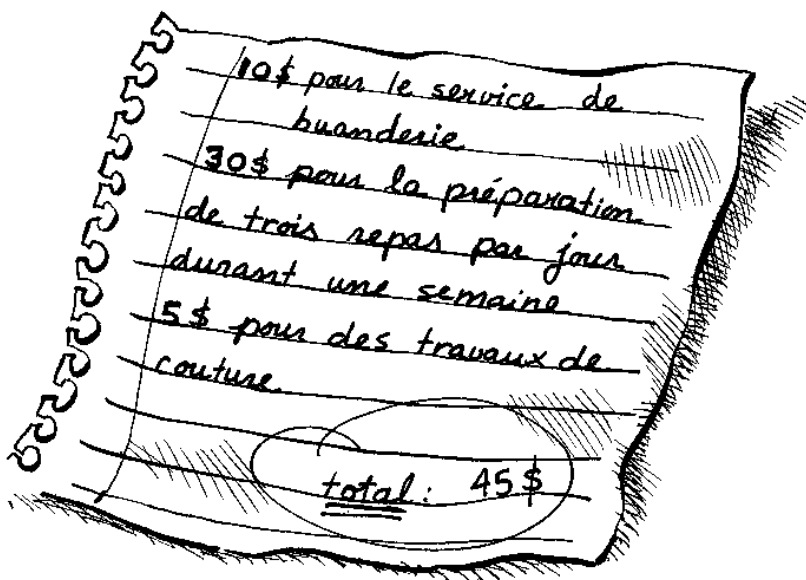 10$ pour le service de
buanderie
30$ pour la préparation
de trois repas par jour
durant une semaine
5$ pour des travaux de
couture
total: 45$